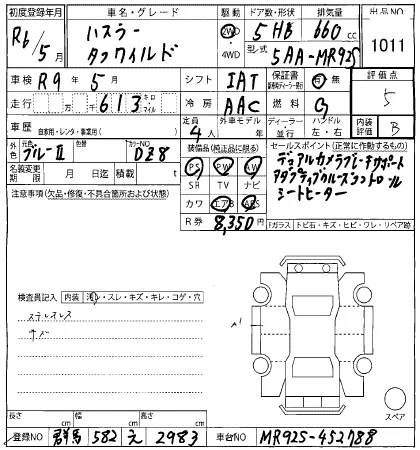 初度登録年月 車名・グレード 駆動 ドア数・形状 排気量 出品NO
R6/5月 ハスラー 2WD 5 HB 660 cc
タフワイルド ・4WD 型式 5AA-MR92S 1011
車検 R9年 5月 シフト IAT 保証書 有・無 評価点
走行 万 千613 キロ マイル 冷房 AAC 燃料 G 5
車歴 自家用・レンタ・事業用( ) 定員 4人 外車モデル 年 ディーラー・並行 ハンドル 左・右 内装評価 B
外色 元色 ブルーⅡ 色替 カラーNO DZ8 装備品(純正品に限る) セールスポイント(正常に作動するもの)
名義変更 月 日迄 積載 t PS PW AW デュアルカメラブレーキサポート
注意事項(欠品・修復・不具合箇所および状態) SR TV ナビ アダプティブクルーズコントロール
カワ エアB ABS シートヒーター
R券 8,350円 Fガラス トビ石・キズ・ヒビ・ワレ・リペア跡
検査員記入 内装 汚レ・スレ・キズ・キレ・コゲ・穴
ステレオレス
キズ
A1
スペア
長さ cm 幅 cm 高さ cm
登録NO 群馬 582 え 2983 車台NO MR92S-452788